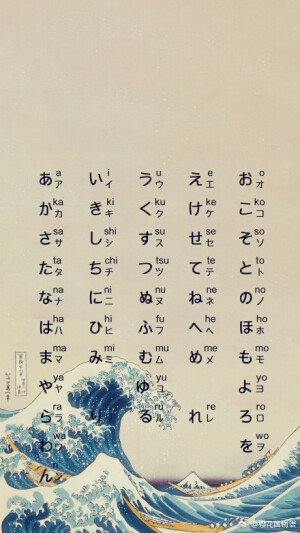 あ a ア い i イ う u ウ え e エ お o オ
か ka カ き ki キ く ku ク け ke ケ こ ko コ
さ sa サ し shi シ す su ス せ se セ そ so ソ
た ta タ ち chi チ つ tsu ツ て te テ と to ト
な na ナ に ni ニ ぬ nu ヌ ね ne ネ の no ノ
は ha ハ ひ hi ヒ ふ fu フ へ he ヘ ほ ho ホ
ま ma マ み mi ミ む mu ム め me メ も mo モ
や ya ヤ ゆ yu ユ よ yo ヨ
ら ra ラ り る ru ル れ re レ ろ ro ロ
わ wa ワ を wo ヲ
ん ン
@樱花国物语